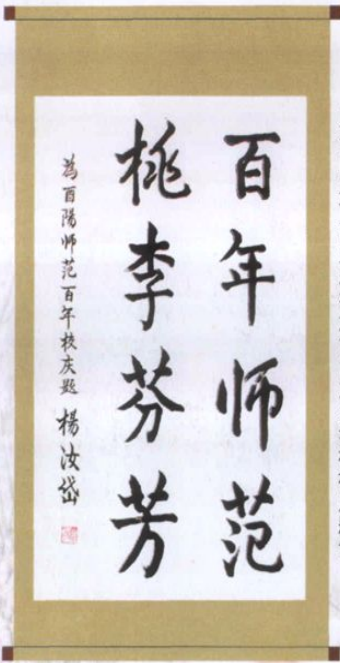 百年师范
桃李芬芳
为酉阳师范百年校庆题 杨汝岱